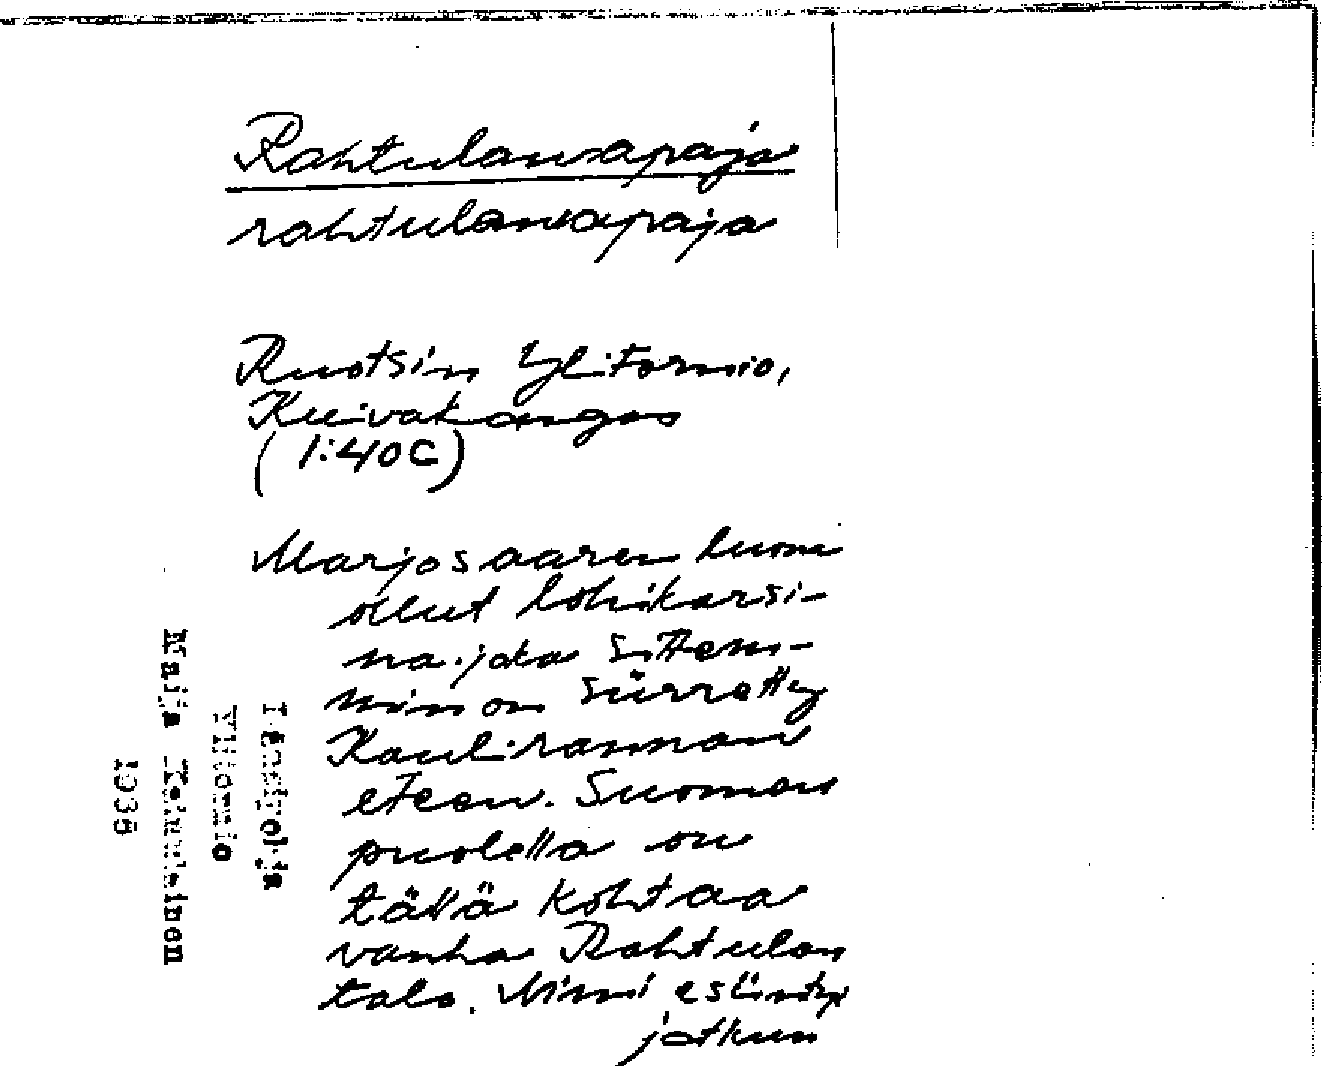 Rahtulanapaja
rahtulanapaja
Ruotsin Ylitornio,
Kuivakangas
(1:40C)
Marjosaaren luona
ollut lohikarsi-
na, joka sittem-
min on siirretty
Kaulirannan
eteen. Suomen
puolella on
tällä kohtaa
vanha Rahtulan
talo. Nimi esiintyy
jatkuu
Länsipohja
Ylitornio
Maija
1936